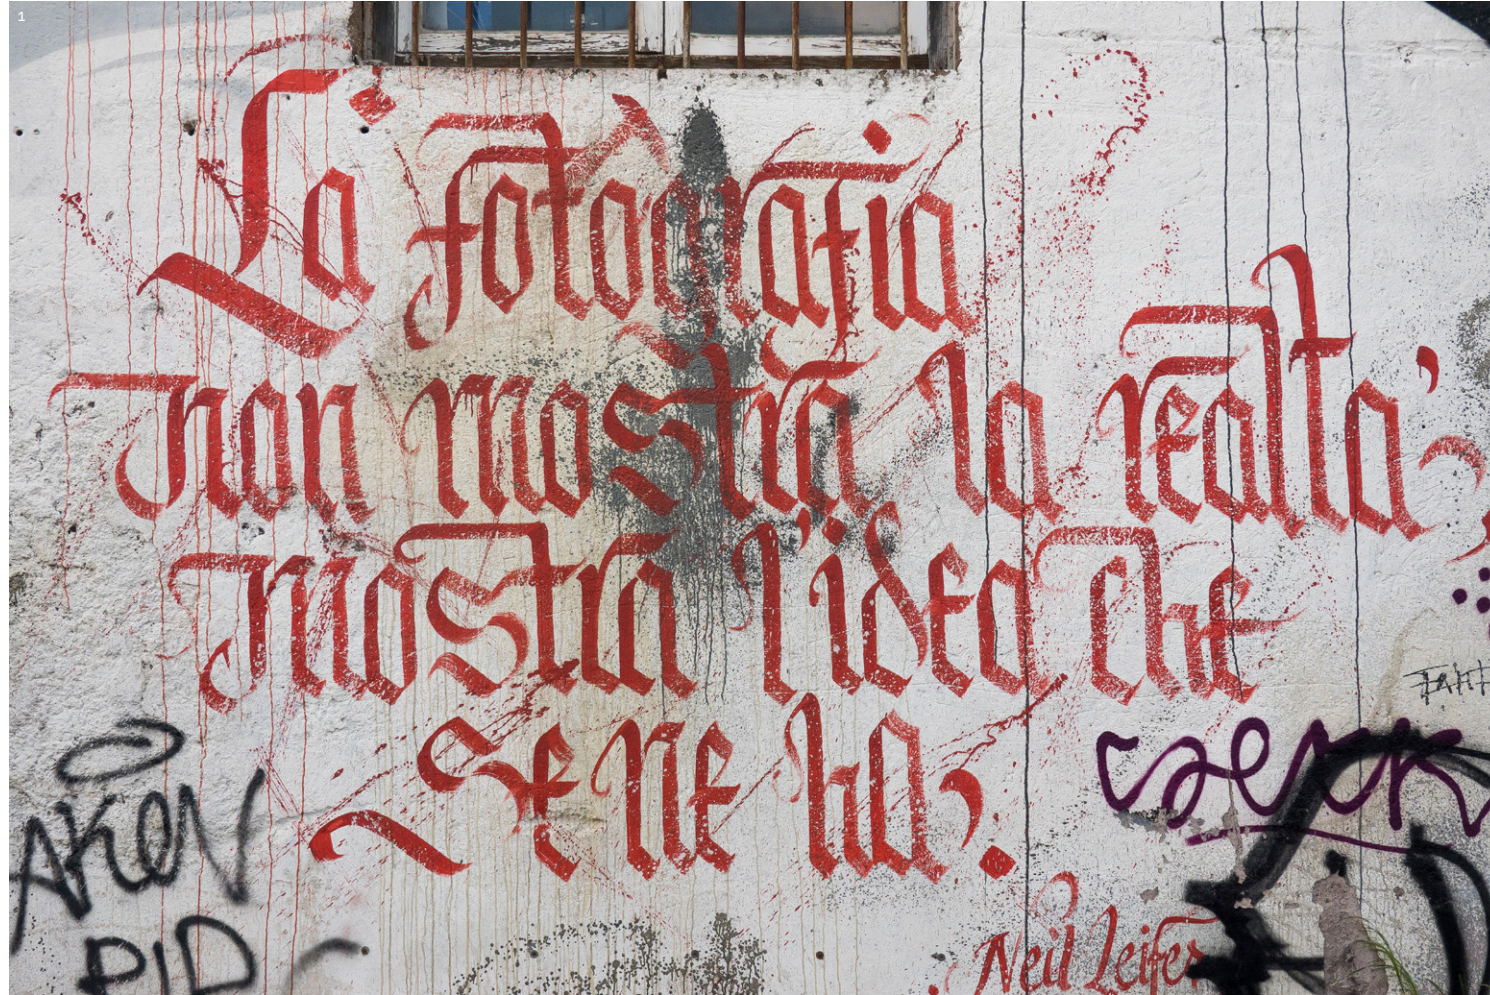 1
La fotografia
non mostra la realtà,
mostra l'idea che
se ne ha.
Neil Leifer
AKEN
PID